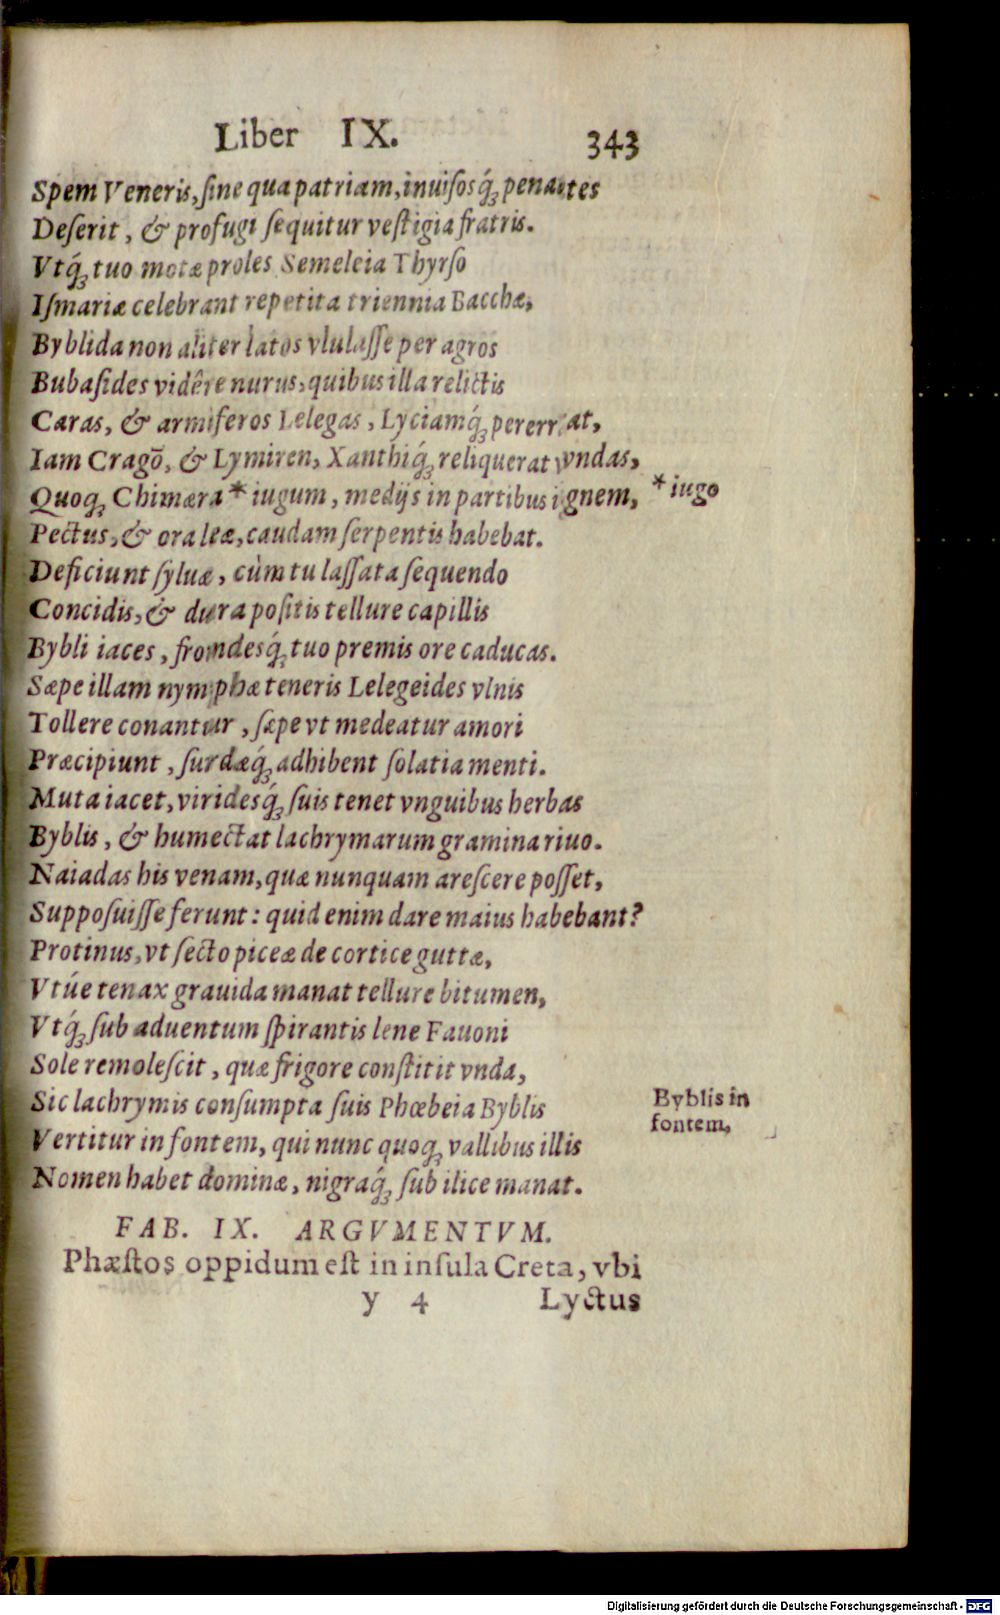 Liber IX. 343
Spem Veneris, ſine qua patriam, inuiſosq́; penates
Deſerit, & profugi ſequitur veſtigia fratris.
Vtq́; tuo motæ proles Semeleia Thyrſo
Iſmariæ celebrant repetita triennia Bacchæ,
Byblida non aliter latos vlulaſſe per agros
Bubaſides vidêre nurus, quibus illa relictis
Caras, & armiferos Lelegas, Lyciamq́; pererrat,
Iam Cragō, & Lymiren, Xanthiq́; reliquerat vndas,
Quoq; Chimæra * iugum, medijs in partibus ignem, * iugo
Pectus, & ora leæ, caudam ſerpentis habebat.
Deficiunt ſyluæ, cùm tu laſſata ſequendo
Concidis, & dura poſitis tellure capillis
Bybli iaces, frondesq́; tuo premis ore caducas.
Sæpe illam nymphæ teneris Lelegeides vlnis
Tollere conantur, ſæpe vt medeatur amori
Præcipiunt, ſurdæq́; adhibent ſolatia menti.
Muta iacet, viridesq́; ſuis tenet vnguibus herbas
Byblis, & humectat lachrymarum gramina riuo.
Naiadas his venam, quæ nunquam areſcere poſſet,
Suppoſuiſſe ferunt: quid enim dare maius habebant?
Protinus, vt ſecto piceæ de cortice guttæ,
Vtúe tenax grauida manat tellure bitumen,
Vtq́; ſub aduentum ſpirantis lene Fauoni
Sole remoleſcit, quæ frigore conſtitit vnda,
Sic lachrymis conſumpta ſuis Phœbeia Byblis
Vertitur in fontem, qui nunc quoq; vallibus illis
Nomen habet dominæ, nigraq́; ſub ilice manat.
Byblis in
fontem,
FAB. IX. ARGVMENTVM.
Phæſtos oppidum eſt in inſula Creta, vbi
y 4 Lyctus
Digitalisierung gefördert durch die Deutsche Forschungsgemeinschaft - DFG